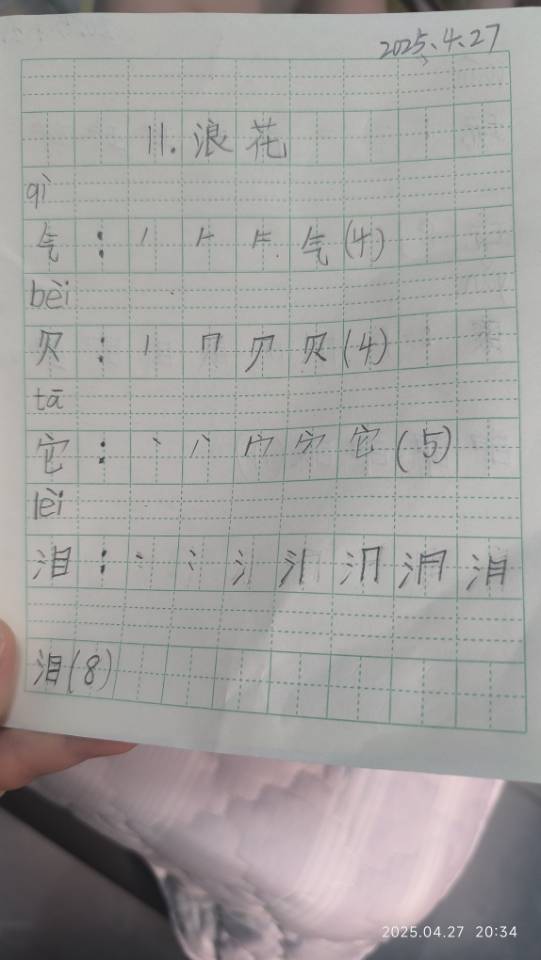 2025.4.27
11.浪花
qì
气：丿 𠂉 气(4)
bèi
贝：丨 冂 贝(4)
tā
它：丶 丷 宀 它(5)
lèi
泪：丶 冫 氵 泪
泪(8)
2025.04.27 20:34